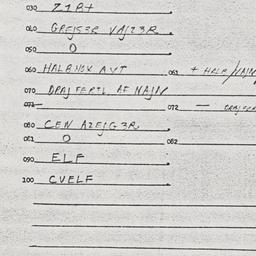 030 ZIRT
040 GREJSER VAJZ3R
050 O
060 HALBNOX AVT 061 + HALB/NAJN
070 DRAJFERTL AF NAJN
071 — 072 —
080 CEN AZEJG3R
081 O 082
090 ELF
100 CVELF